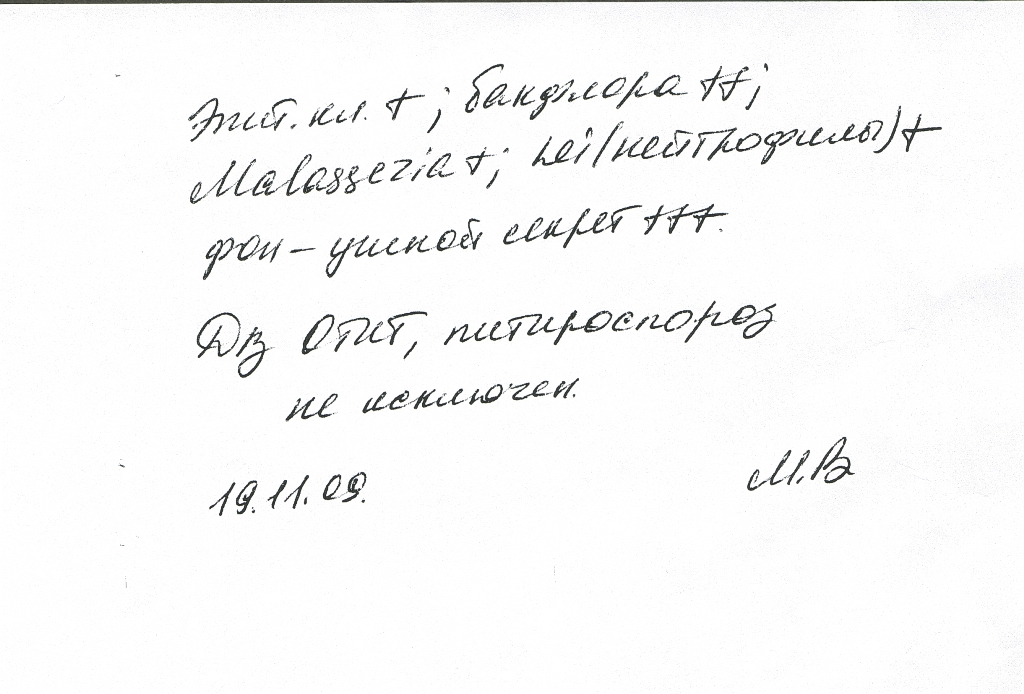 Эпит. кл. +; бакфлора ++;
Malassezia +; Lei (нейтрофилы) +
фон – ушной секрет +++.
Дз Отит, питироспороз
не исключен.
19.11.09. М.В